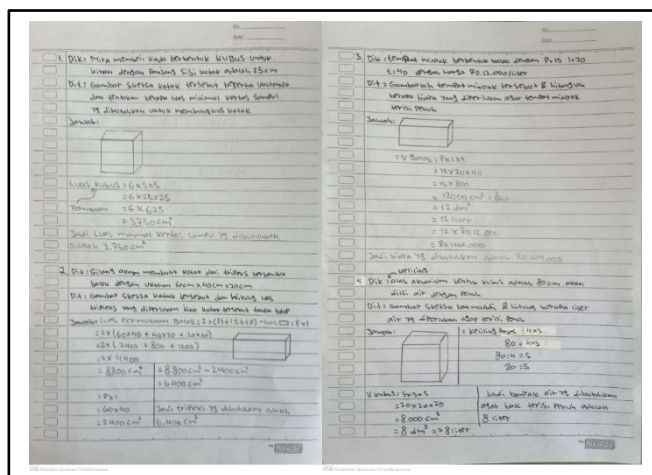 1. Dik: Mira membeli kado berbentuk KUBUS untuk
kiran dengan Panjang Sisi kotak adalah 25 cm
Dit: Gambar sketsa kotak tersebut beserta ukurannya
dan tentukan berapa luas minimal kertas Sampul
yg dibutuhkan untuk membungkus kotak
Jawab:
Luas kubus = 6×s×s
Permukaan
= 6×25×25
= 6 × 625
= 3.750 cm²
Jadi Luas minimal kertas Sampul yg dibutuhkan
adalah 3.750 cm²
2. Dik: akan membuat kotak dari tripleks berbentuk
balok dengan ukuran 60cm×40cm×20cm
Dit: Gambar sketsa kotak tersebut dan hitung luas
tripleks yang diperlukan jika kotak tersebut tanpa tutup
Jawab: Luas Permukaan Balok: 2×(Pl+lt+tP) - luas = P×l
= 2×(60×40 + 40×20 + 20×60)
= 2×(2400 + 800 + 1200)
= 2× 4.400
= 8800 cm²
= P×l
= 60×40
= 2400 cm²
= 8.800 cm² - 2400 cm²
= 6.400 cm²
Jadi tripleks yg dibutuhkan adalah
6.400 cm²
3. Dik: tempat minyak berbentuk balok dengan P:15 l:20
t:40 dengan harga Rp.12.000/liter
Dit: Gambarlah tempat minyak tersebut & hitunglah
berapa biaya yang diperlukan agar tempat minyak
terisi Penuh
Jawab:
= V Balok: P×l×t
= 15×20×40
= 15×800
= 12000 cm³
= 12 dm³
= 12 liter
= 12 × Rp 12.000
= Rp 144.000
Jadi biaya yg dibutuhkan adalah Rp.144.000
keliling
4. Dik: alas akuarium bentuk kubus adalah 80cm, akan
diisi air dengan Penuh
Dit: Gambar sketsa & hitung berapa liter
air yg diperlukan agar terisi Penuh
Jawab:
= keliling : 4×s
80 = 4×s
80:4 = s
20 = s
V kubus: s×s×s
= 20×20×20
= 8.000 cm³
= 8 dm³ => 8 liter
Jadi banyak air yg dibutuhkan
agar bak terisi Penuh adalah
8 liter